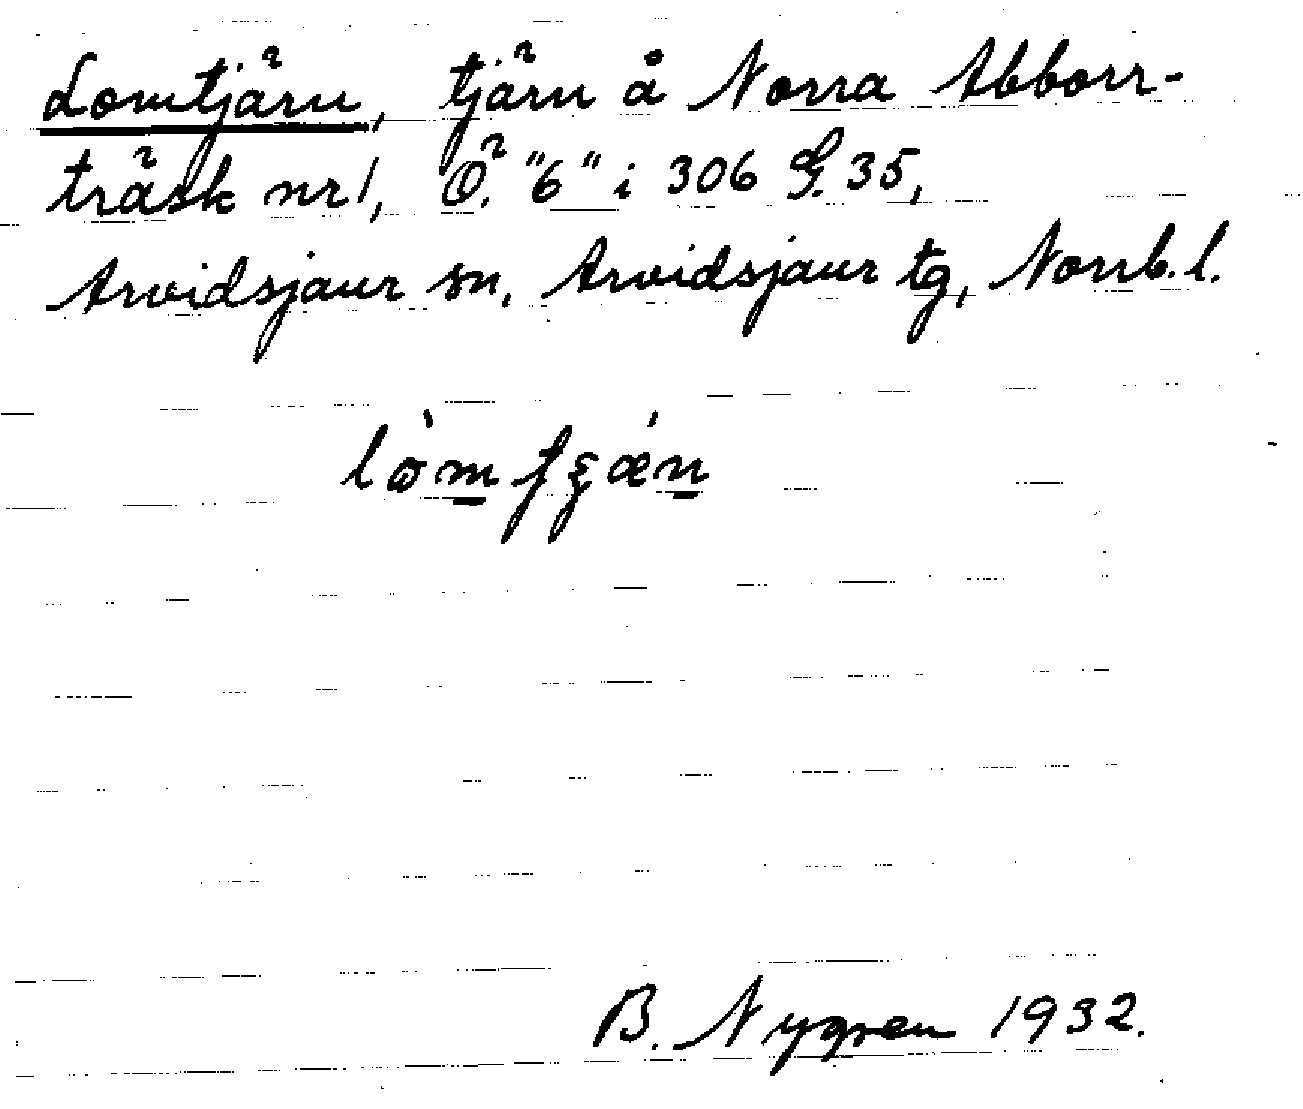 Lomtjärn, tjärn å Norra Abborr-
träsk nr 1, Ö. "6" i 306 G. 35,
Arvidsjaur sn, Arvidsjaur tg, Norrb. l.
B. Nygren 1932.